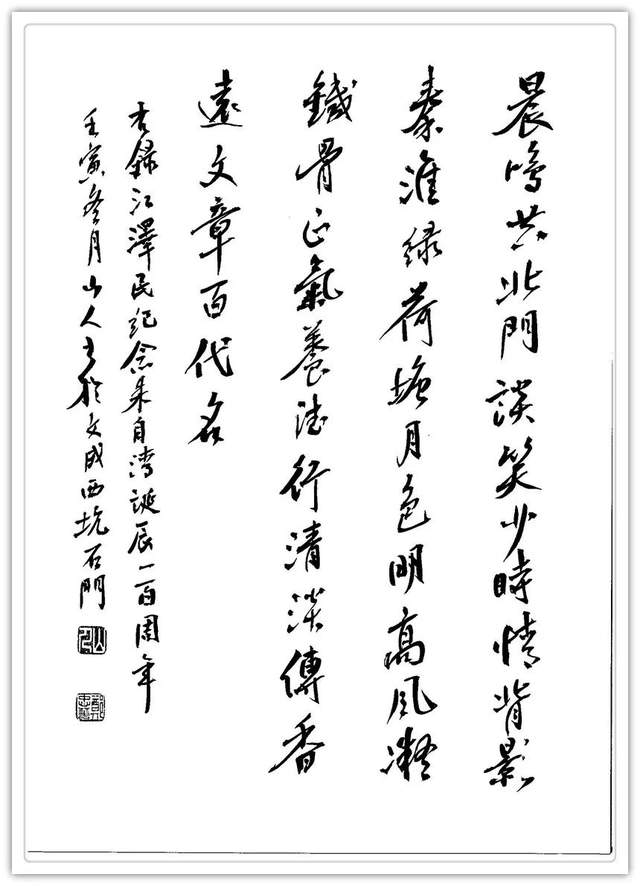 晨鳴共北門談笑少時情背影
秦淮綠荷塘月色明高風凝
鐵骨正氣養德行清淡傳香
遠文章百代名
右録江澤民紀念朱自清誕辰一百周年
壬寅冬月山人書於文成西坑石門